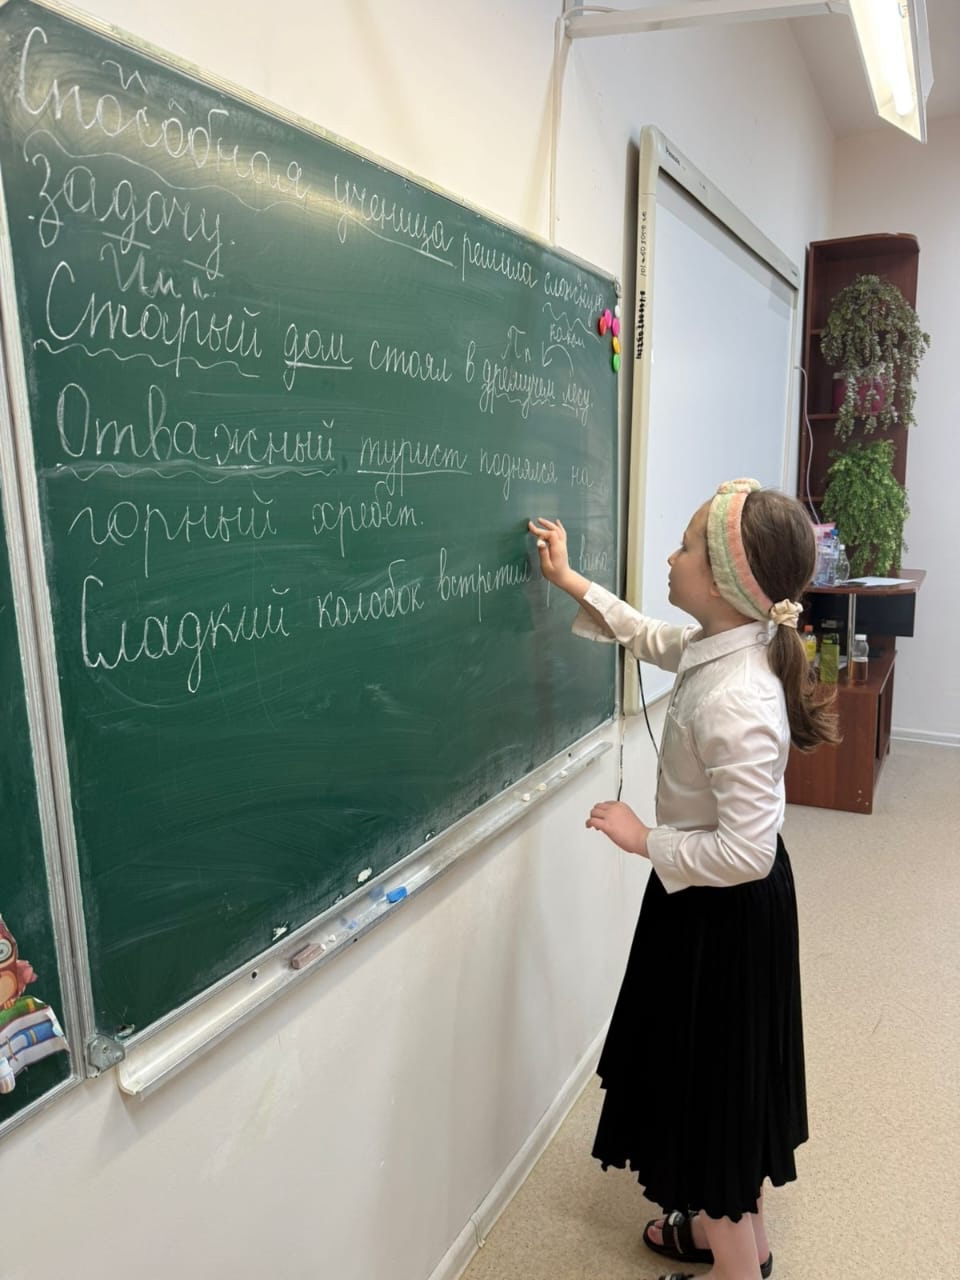 И
Способная ученица решила сложную
задачу.
И.п.
каком
П.п.
Старый дом стоял в дремучем лесу.
Отважный турист поднялся на
горный хребет.
Сладкий колобок встретил волка